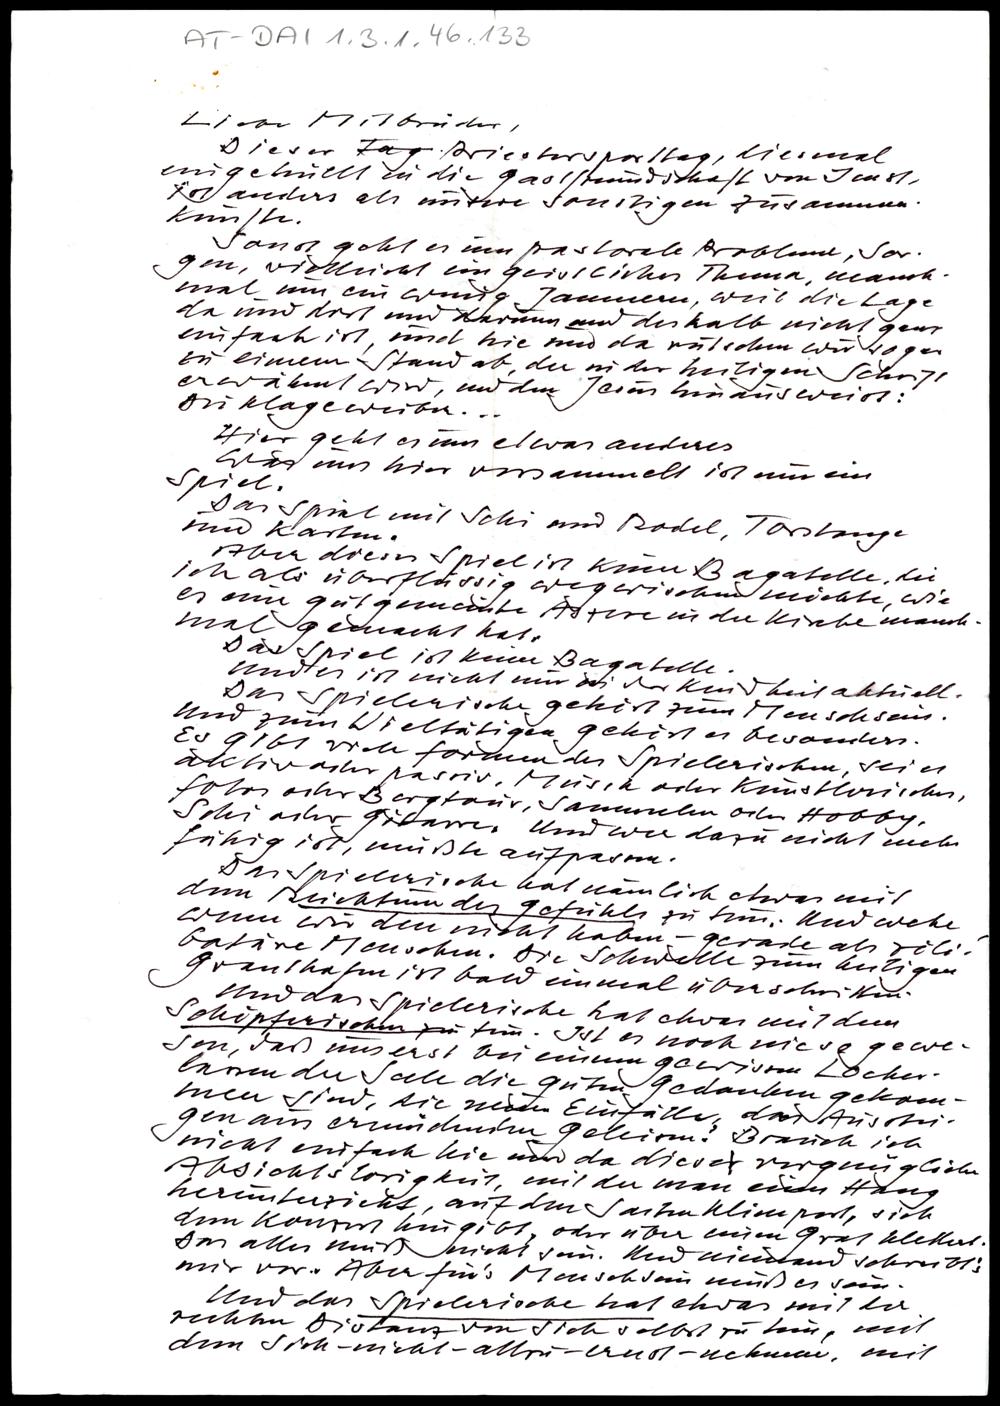 AT-DAI 1.3.1.46.133
Liebe Mitbrüder,
Dieser Tag Priestersporttag, diesmal
eingehüllt in die Gastfreundschaft von Imst,
ist anders als unsere sonstigen Zusammen-
künfte.
Sonst geht es um pastorale Probleme, Sor-
gen, vielleicht ein geistliches Thema, manch-
mal um ein wenig Jammern, weil die Lage
da und dort und darum und deshalb nicht ganz
einfach ist, und hie und da rutschen wir sogar
zu einem Stand ab, der in der heiligen Schrift
erwähnt wird, und den Jesus hinausweist:
Die Klageweiber...
Hier geht es um etwas anderes
Was uns hier versammelt ist nur ein
Spiel.
Das Spiel mit Schi und Rodel, Torstange
und Karten.
Aber dieses Spiel ist keine Bagatelle, die
ich als überflüssig wegwischen möchte, wie
es eine gutgemeinte Aszese in der Kirche manch-
mal gemacht hat.
Das Spiel ist keine Bagatelle.
Und es ist nicht nur in der Kindheit aktuell.
Das Spielerische gehört zum Menschsein.
Und zum Vieltätigen gehört es besonders.
Es gibt viele Formen des Spielerischen, sei es
aktiv oder passiv, Musik oder Künstlerisches,
Fotos oder Bergtour, Sammeln oder Hobby,
Schi oder Gitarre. Und wer dazu nicht mehr
fähig ist, müßte aufpassen.
Das Spielerische hat nämlich etwas mit
dem Reichtum des Gefühls zu tun. Und wehe
wenn wir den nicht haben - gerade als zöli-
batäre Menschen. Die Schwelle zum heiligen
Granthafen ist bald einmal überschritten.
Und das Spielerische hat etwas mit dem
Schöpferischen zu tun. Ist es noch nie so gewe-
sen, daß uns erst bei einem gewissen Locker-
lassen der Seele die guten Gedanken gekom-
men sind, die neuen Einfälle, das Ausstei-
gen aus ermüdenden Geleisen? Brauch ich
nicht einfach hie und da dieses vergnügliche
Absichtslosigkeit, mit der man einen Hang
herunterzieht, auf den Saiten klimpert, sich
dem Konzert hingibt, oder über einen Grat klettert.
Das alles muß nicht sein. Und niemand schreibt's
mir vor. Aber für's Menschsein muß es sein.
Und das Spielerische hat etwas mit der
rechten Distanz von sich selbst zu tun, mit
dem Sich-nicht-allzu-ernst-nehmen, mit